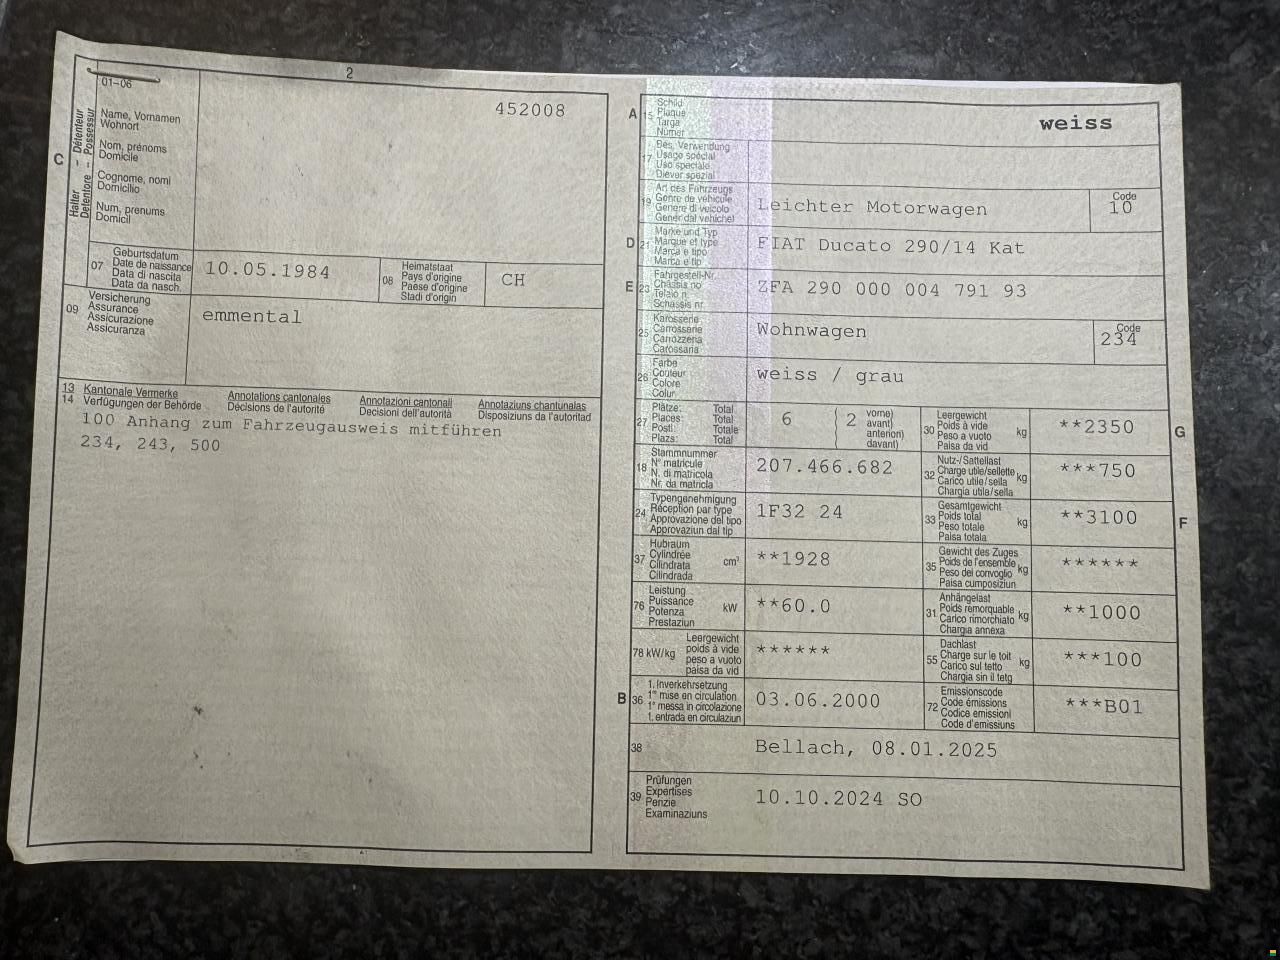 2
01-06
452008
C
Halter - Détenteur
Detentore - Possessur
Name, Vornamen
Wohnort
Nom, prénoms
Domicile
Cognome, nomi
Domicilio
Num, prenums
Domicil
07
Geburtsdatum
Date de naissance
Data di nascita
Data da nasch.
10.05.1984
08
Heimatstaat
Pays d'origine
Paese d'origine
Stadi d'origin
CH
09
Versicherung
Assurance
Assicurazione
Assicuranza
emmental
13 Kantonale Vermerke Annotations cantonales Annotazioni cantonali Annotaziuns chantunalas
14 Verfügungen der Behörde Décisions de l'autorité Decisioni dell'autorità Disposiziuns da l'autoritad
100 Anhang zum Fahrzeugausweis mitführen
234, 243, 500
A
15
Schild
Plaque
Targa
Numer
weiss
17
Bes. Verwendung
Usage spécial
Uso speciale
Diever spezial
19
Art des Fahrzeugs
Genre de véhicule
Genere di veicolo
Gener dal vehichel
Leichter Motorwagen
Code
10
D
21
Marke und Typ
Marque et type
Marca e tipo
Marca e tip
FIAT Ducato 290/14 Kat
E
23
Fahrgestell-Nr.
Châssis no
Telaio n.
Schassis nr.
ZFA 290 000 004 791 93
25
Karosserie
Carrosserie
Carrozzeria
Carossaria
Wohnwagen
Code
234
26
Farbe
Couleur
Colore
Colur
weiss / grau
27
Plätze: Total
Places: Total
Posti: Totale
Plazs: Total
6
2
vorne)
avant)
anteriori)
davant)
30
Leergewicht
Poids à vide
Peso a vuoto
Paisa da vid
kg
**2350
G
18
Stammnummer
N° matricule
N. di matricola
Nr. da matricla
207.466.682
32
Nutz-/Sattellast
Charge utile/sellette
Carico utile/sella
Chargia utila/sella
kg
***750
24
Typengenehmigung
Réception par type
Approvazione del tipo
Approvaziun dal tip
1F32 24
33
Gesamtgewicht
Poids total
Peso totale
Paisa totala
kg
**3100
F
37
Hubraum
Cylindrée
Cilindrata
Cilindrada
cm³
**1928
35
Gewicht des Zuges
Poids de l'ensemble
Peso del convoglio
Paisa cumposiziun
kg
******
76
Leistung
Puissance
Potenza
Prestaziun
kW
**60.0
31
Anhängelast
Poids remorquable
Carico rimorchiato
Chargia annexa
kg
**1000
78 kW/kg
Leergewicht
poids à vide
peso a vuoto
paisa da vid
******
55
Dachlast
Charge sur le toit
Carico sul tetto
Chargia sin il tetg
kg
***100
B
36
1. Inverkehrsetzung
1re mise en circulation
1a messa in circolazione
1. entrada en circulaziun
03.06.2000
72
Emissionscode
Code émissions
Codice emissioni
Code d'emissiuns
***B01
38
Bellach, 08.01.2025
39
Prüfungen
Expertises
Perizie
Examinaziuns
10.10.2024 SO